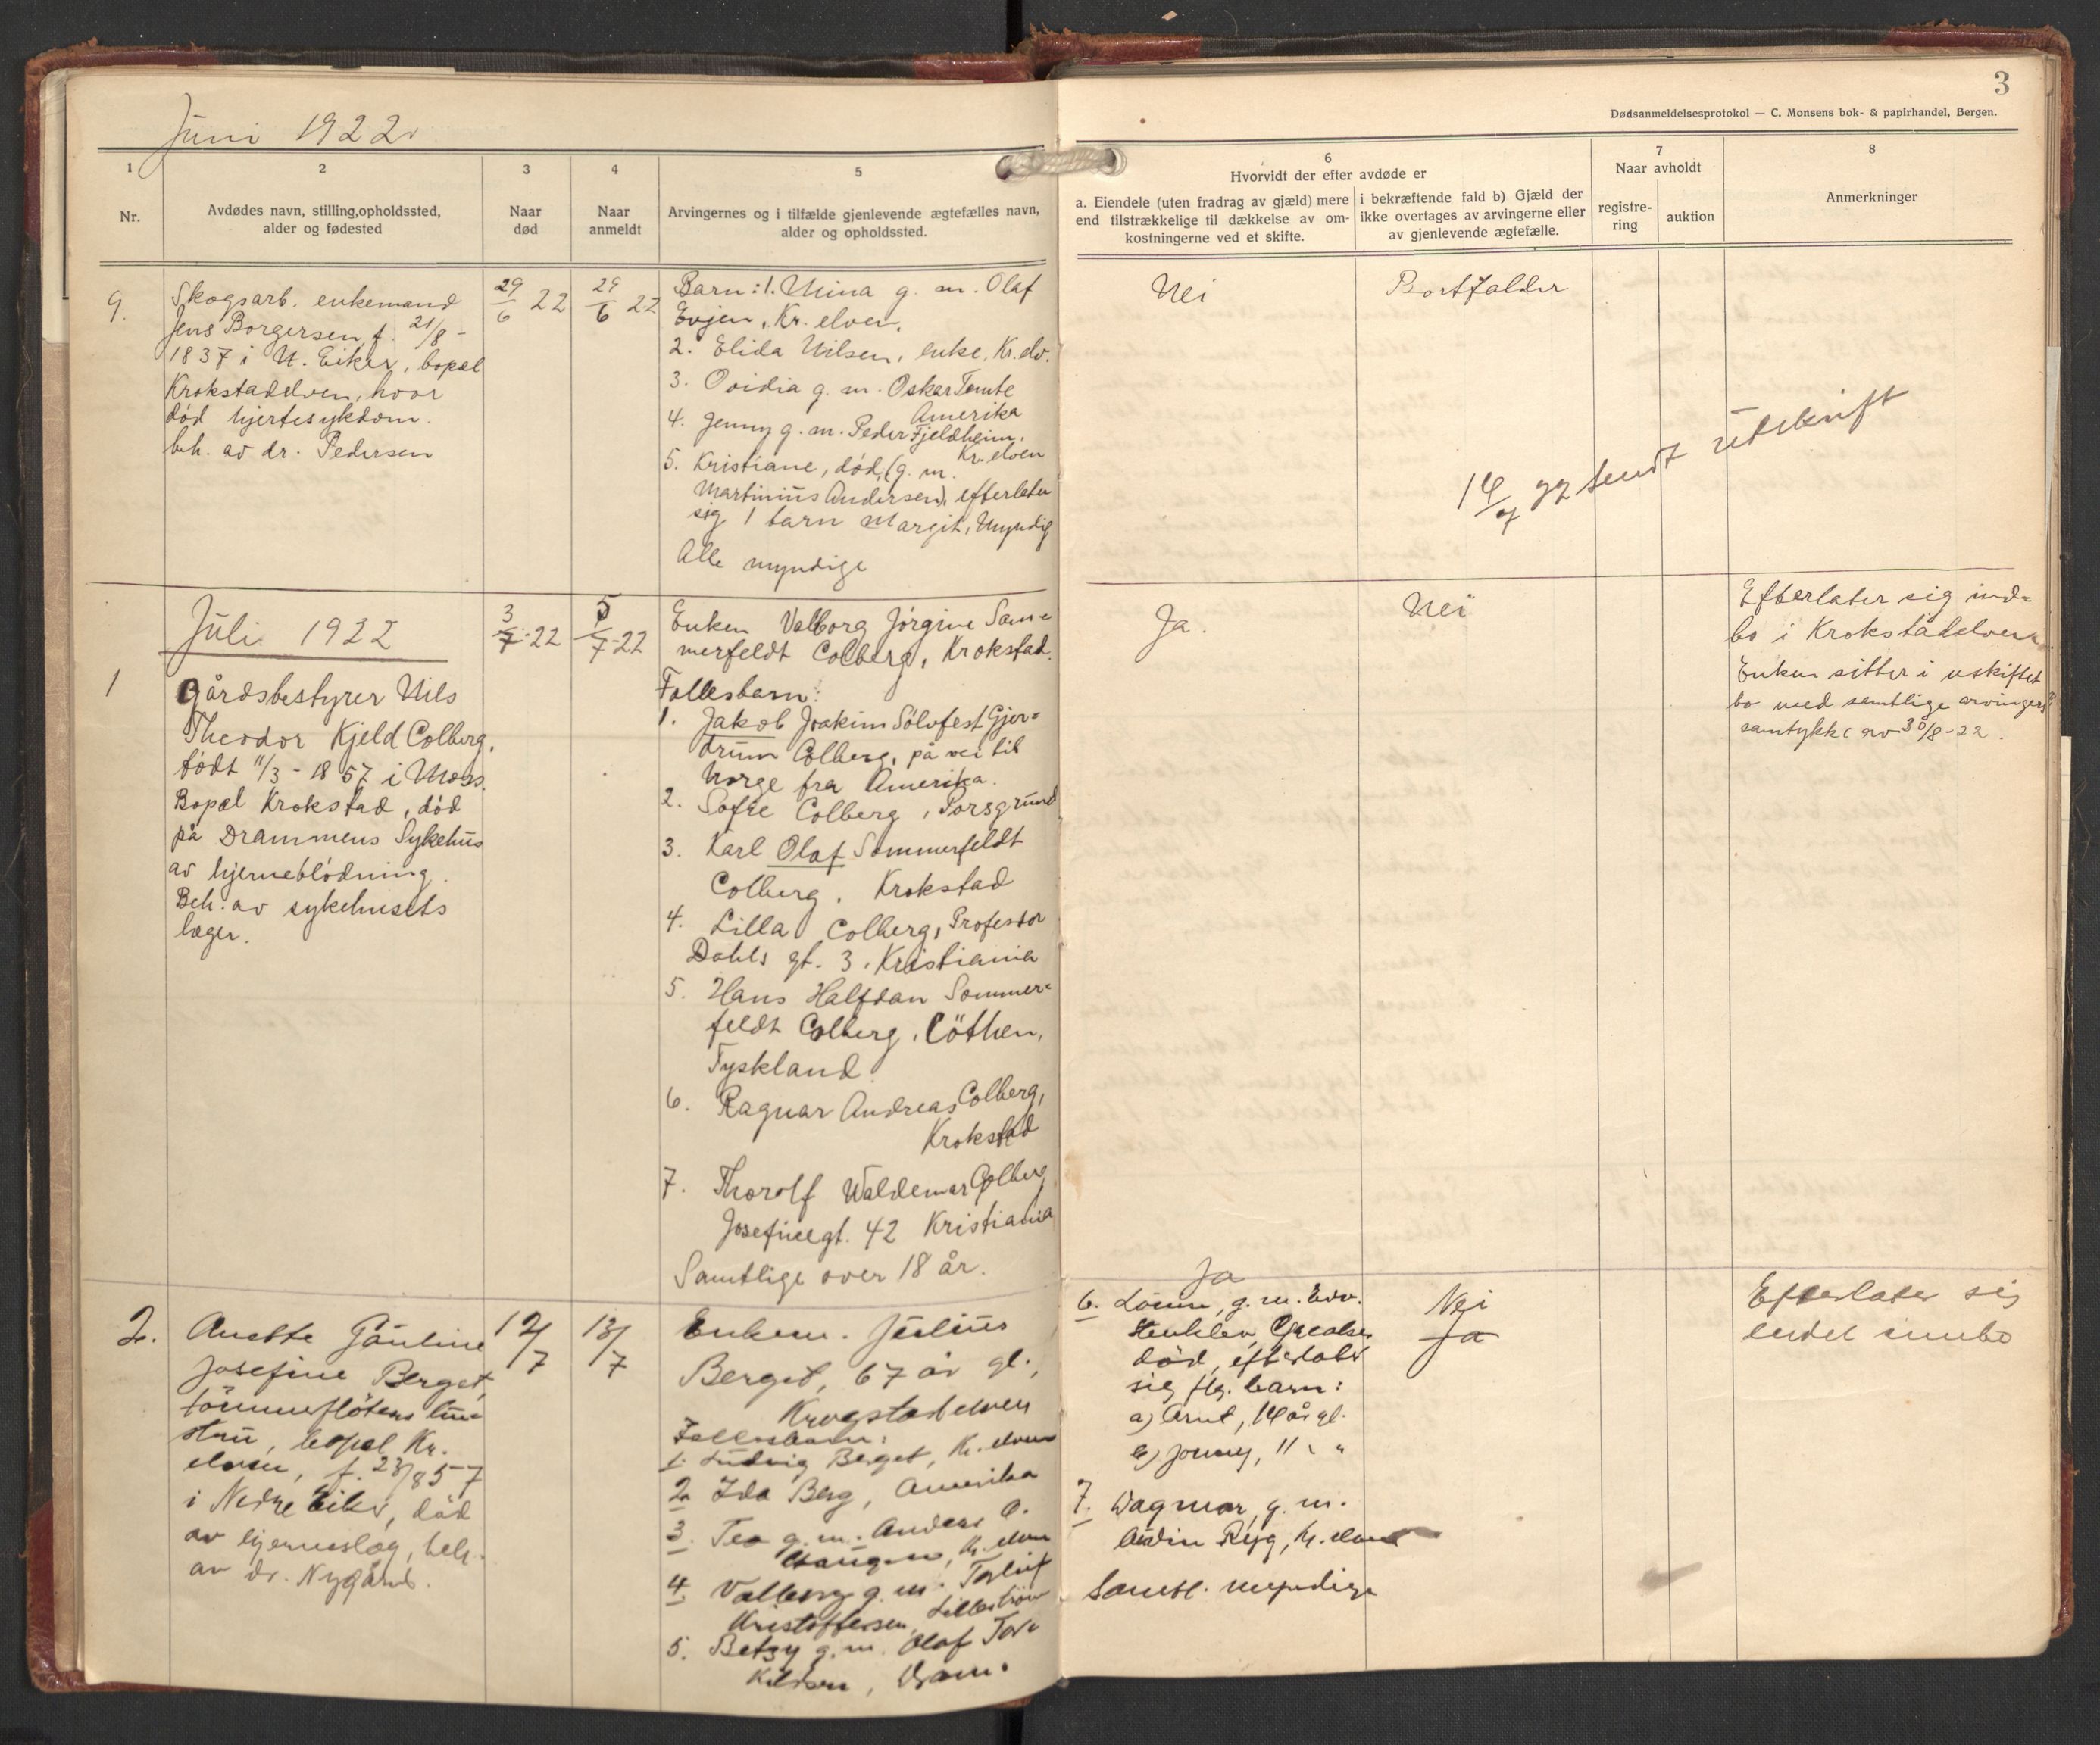 Juni 1922
1
Nr.
2
Avdødes navn, stilling, opholdssted,
alder og fødested
3
Naar
død
4
Naar
anmeldt
5
Arvingernes og i tilfælde gjenlevende ægtefælles navn,
alder og opholdssted.
9.
Skogsarb. enkemand
Jens Borgersen, f. 21/8 -
1837 i N. Eiker, bopæl
Krokstadelven, hvor
død hjertesykdom.
beh. av dr. Pedersen
29/6 22
29/6 22
Barn: 1. Mina g. m. Olaf
Evjen, Kr. elven.
2. Elida Nilsen, enke, Kr. elv.
3. Ovidia g. m. Oskar Tomte
Amerika
4. Jenny g. m. Peder Fjeldheim,
Kr. elven
5. Kristiane, død, (g. m.
Martinius Andersen), efterlater
sig 1 barn Margit, Umyndig
Alle myndige
Juli 1922
1
Gårdsbestyrer Nils
Theodor Kjeld Colberg,
født 11/3 - 1857 i Moss.
Bopæl Krokstad, død
på Drammens Sykehus
av hjerneblødning.
Beh. av sykehusets
læger.
3/7-22
5/7-22
Enken Valborg Jørgine Som=
merfeldt Colberg, Krokstad.
Fællesbarn:
1. Jakob Joakim Sølvfest Gjer=
drum Colberg, på vei til
Norge fra Amerika.
2. Sofie Colberg, Porsgrund
3. Karl Olaf Sommerfeldt
Colberg, Krokstad
4. Lilla Colberg, Professor
Dahls gt. 3, Kristiania
5. Hans Halfdan Sommer=
feldt Colberg, Cöthen,
Tyskland
6. Ragnar Andreas Colberg,
Krokstad
7. Thorolf Waldemar Colberg
Josefinegt. 42 Kristiania
Samtlige over 18 år.
2.
Anette Pauline
Josefine Berget,
tømmerfløters hu=
stru, bopæl Kr.
elven, f. 23/8 57
i Nedre Eiker, død
av hjerneslag, beh.
av dr. Nygård.
12/7
13/7
Enkem. Julius
Berget, 67 år gl.,
Krogstadelven
Fællesbarn:
1. Ludvig Berget, Kr. elven
2. Ida Berg, Amerika
3. Tea g. m. Anders A.
Haugen, Kr. elven
4. Valborg g. m. Torleif
Kristoffersen, Lillestrøm
5. Betzy g. m. Olaf Tor
Kildsen, Dram.
3
Dødsanmeldelsesprotokol — C. Monsens bok- & papirhandel, Bergen.
6
Hvorvidt der efter avdøde er
a. Eiendele (uten fradrag av gjæld) mere
end tilstrækkelige til dækkelse av om-
kostningerne ved et skifte.
i bekræftende fald b) Gjæld der
ikke overtages av arvingerne eller
av gjenlevende ægtefælle.
7
Naar avholdt
registre-
ring
auktion
8
Anmerkninger
Nei
Bortfalder
14/7 22 sendt utskrift
Ja.
Nei
Efterlater sig ind=
bo i Krokstadelven
Enken sitter i uskiftet
bo med samtlige arvingers
samtykke av 30/8-22.
Ja
6. Louise, g. m. Edv.
Stenklev,
død, efterlater
sig flg. barn:
a) Arnt, 14 år gl.
b) Jonny, 11 " "
7. Dagmar, g. m.
Audin Ryg, Kr. elven
Samtl. myndige
Nei
Ja
Efterlater sig
endel innbo